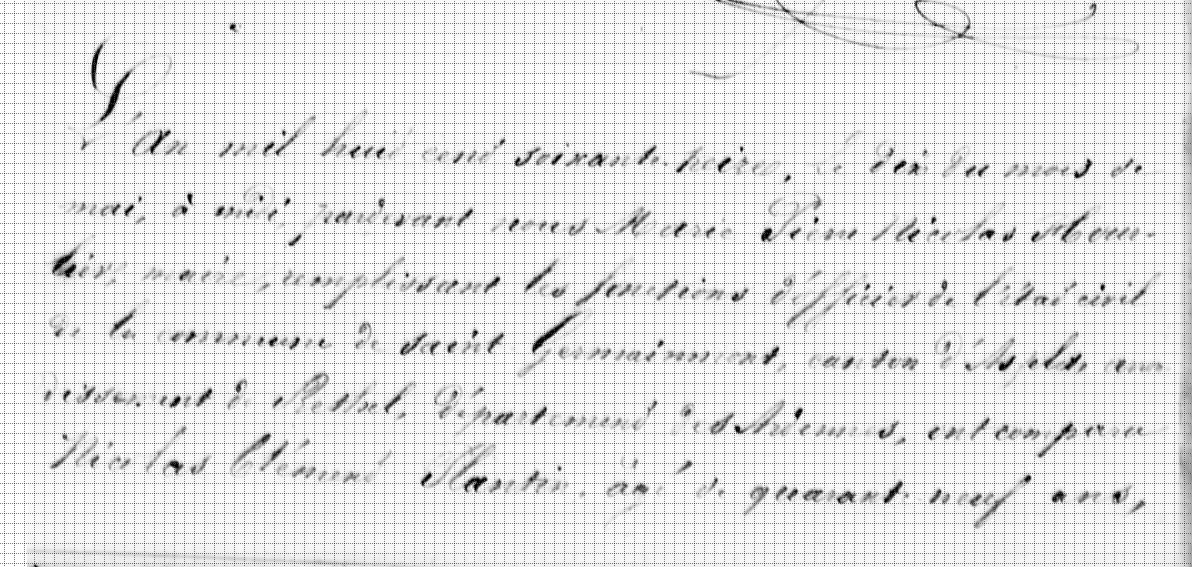 L'an mil huit cent soixante-treize, le dix du mois de
mai, à midi, pardevant nous Marie Pierre Nicolas
maire, remplissant les fonctions d'officier de l'état civil
de la commune de saint Germainmont, canton d'Asfeld, arron-
dissement de Rethel, département des Ardennes, ont comparu
Nicolas Clément Plantin, âgé de quarante neuf ans,